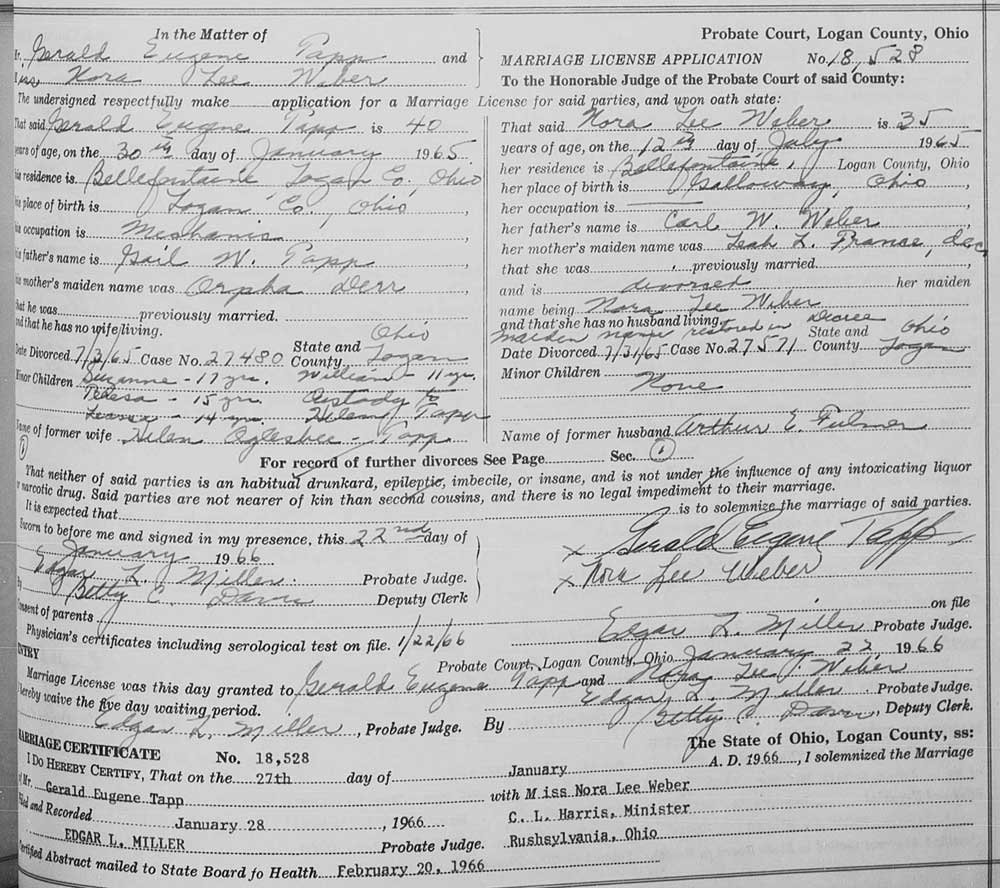 In the Matter of
Gerald Eugene Tapp and
Nora Lee Weber
Probate Court, Logan County, Ohio
MARRIAGE LICENSE APPLICATION No. 18,528
To the Honorable Judge of the Probate Court of said County:
The undersigned respectfully make application for a Marriage License for said parties, and upon oath state:
That said Gerald Eugene Tapp is 40
years of age, on the 30th day of January 1965
his residence is Bellefontaine Logan Co., Ohio
his place of birth is Logan Co., Ohio
his occupation is Mechanic
his father's name is Gail W. Tapp
his mother's maiden name was Orpha Derr
that he was previously married.
and that he has no wife living. Ohio
Date Divorced 7/2/65 Case No. 27480 State and County Logan
Minor Children Suzanne - 17 yrs. William - 11 yrs.
Teresa - 15 yrs. Custody to
- 14 yrs. Helen Tapp
Name of former wife Helen Oglesbee - Tapp
That said Nora Lee Weber is 35
years of age, on the 12th day of July 1965
her residence is Bellefontaine, Logan County, Ohio
her place of birth is Galloway, Ohio
her occupation is
her father's name is Carl W. Weber
her mother's maiden name was Leah L. France, dec,
that she was previously married
and is divorced her maiden
name being Nora Lee Weber
and that she has no husband living. Decree
maiden name restored in State and Ohio
Date Divorced 7/31/65 Case No. 27571 County Logan
Minor Children
None
Name of former husband Arthur E. Fulmer
For record of further divorces See Page Sec.
That neither of said parties is an habitual drunkard, epileptic, imbecile, or insane, and is not under the influence of any intoxicating liquor
or narcotic drug. Said parties are not nearer of kin than second cousins, and there is no legal impediment to their marriage.
It is expected that is to solemnize the marriage of said parties.
Sworn to before me and signed in my presence, this 22nd day of
January 1966
Edgar L. Miller Probate Judge.
By Betty C. Deputy Clerk
x Gerald Eugene Tapp
x Nora Lee Weber
Consent of parents on file
Physician's certificates including serological test on file. 1/22/66
Edgar L. Miller Probate Judge.
ENTRY
Probate Court, Logan County, Ohio January 22, 1966
Marriage License was this day granted to Gerald Eugene Tapp and Nora Lee Weber
I hereby waive the five day waiting period. Edgar L. Miller Probate Judge.
Edgar L. Miller, Probate Judge. By Betty C. , Deputy Clerk.
MARRIAGE CERTIFICATE No. 18,528
The State of Ohio, Logan County, ss:
I DO HEREBY CERTIFY, That on the 27th day of January A. D. 1966, I solemnized the Marriage
of Mr. Gerald Eugene Tapp with Miss Nora Lee Weber
Filed and Recorded January 28, 1966
C. L. Harris, Minister
EDGAR L. MILLER Probate Judge.
Rushsylvania, Ohio
Certified Abstract mailed to State Board fo Health February 20, 1966